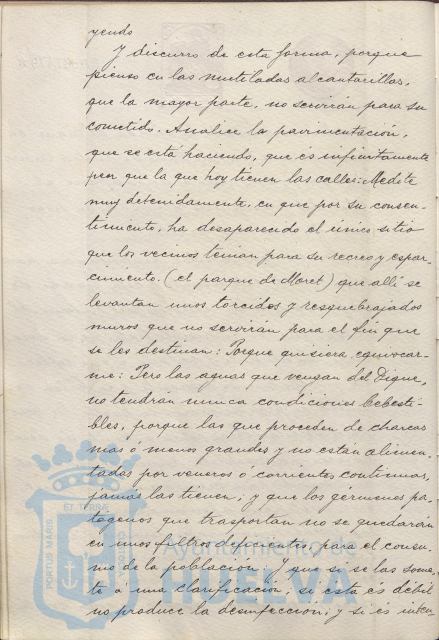 yendo
Y discurro de esta forma, porque
pienso en las mutiladas alcantarillas,
que la mayor parte, no servirán para su
cometido. Analice la pavimentación,
que se está haciendo, que és infinitamente
peor que la que hoy tienen las calles: Medite
muy detenidamente, en que por su consen-
timiento, ha desaparecido el único sitio
que los vecinos tenian para su recreo y espar-
cimiento. (el parque de Moret) que allí se
levantan unos torcidos y resquebrajados
muros que no servirán para el fin que
se les destinan: Porque quisiera equivocar-
me: Pero las aguas que vengan del Dique,
no tendrán nunca condiciones bebesti-
bles, porque las que proceden de charcas
mas ó menos grandes y no están alimen-
tadas por veneros ó corrientes continuas,
jamás las tienen; y que los germenes pa-
togenos que trasportan no se quedarán
en unos filtros deficientes, para el consu-
mo de la población. Y que si se las some-
te a una clarificación; si esta és débil
no produce la desinfección; y si és inten-
PORTUS MARIS
ET TERRÆ
Ayuntamiento de
HUELVA